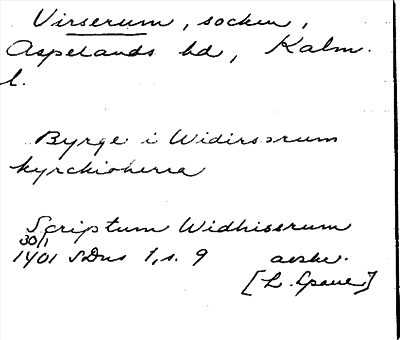 Virserum, socken,
Aspelands hd, Kalm.
l.
Byrge i Widirsørum
kyrchioherra
Scriptum Widhissrum
30/1
1401 SDns 1, s. 9 avskr.